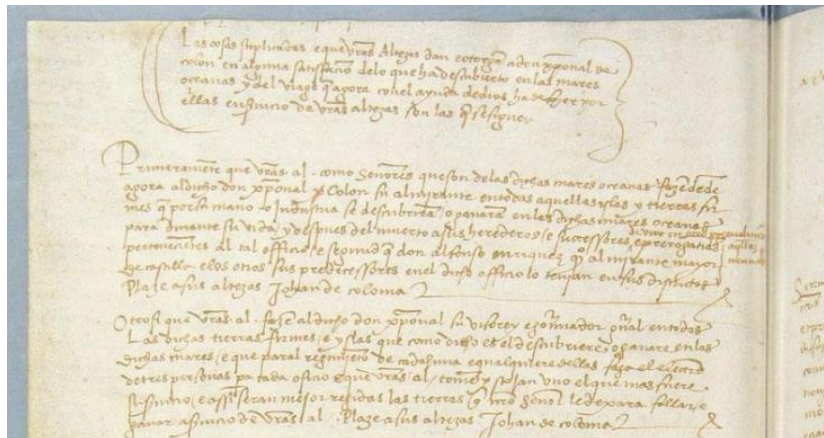 Las cosas suplicadas e que vr̃as Altezas dan e otorgan a don xp̃oual de
colon en alguna satisfacion de lo que ha descubierto en las mares
oceanas y del viage q̃ agora con el ayuda de dios ha de fazer por
ellas en seruicio de vr̃as altezas son las q̃ se siguen
Primeramẽte que vr̃as al. como Senores que son de las dichas mares oceanas fazẽ dende
agora al dicho don xp̃oual Colon su almirante en todas aquellas islas y tierras fir
mes q̃ por su mano o industria se descubrirã o ganarã en las dichas mares oceanas
para durante su vida y despues del muerto a sus herederos e successores
e prerogatiuas
pertenecientes al tal officio e segund q̃ don alfonso enrriquez almirante mayor
de castilla e los otros sus predecessores en el dicho officio lo tenian en sus districtos
Plaze a sus altezas Johan de coloma
Otrosi que vr̃as al. fazẽ al dicho don xp̃oual su visorey e gouernador gñal en todas
las dichas tierras firmes e yslas que como dicho es el descubriere o ganare en las
dichas mares e que paral regimiẽto de cada huna e qualquiere dellas faga el eleccion
de tres personas pa cada oficio e que vr̃as al. tomẽ y scojan vno el que mas fuere
su seruicio e assi seran mejor regidas las tierras q̃ nr̃o Senor le dexara fallar e
ganar a seruicio de vr̃as al. Plaze a sus altezas Johan de coloma